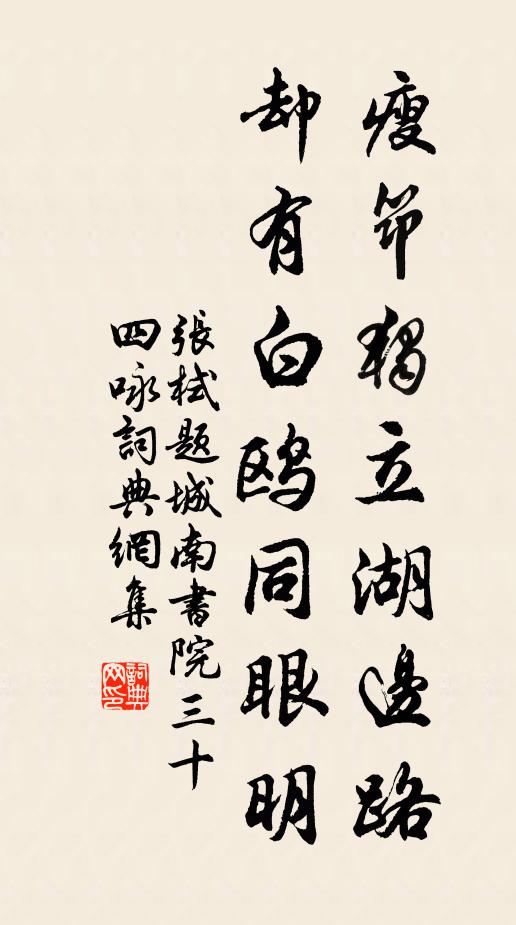 瘦筇獨立湖邊路
却有白鸥同眼明
張栻題城南書院三十
四咏詞典網集
詞典
网印